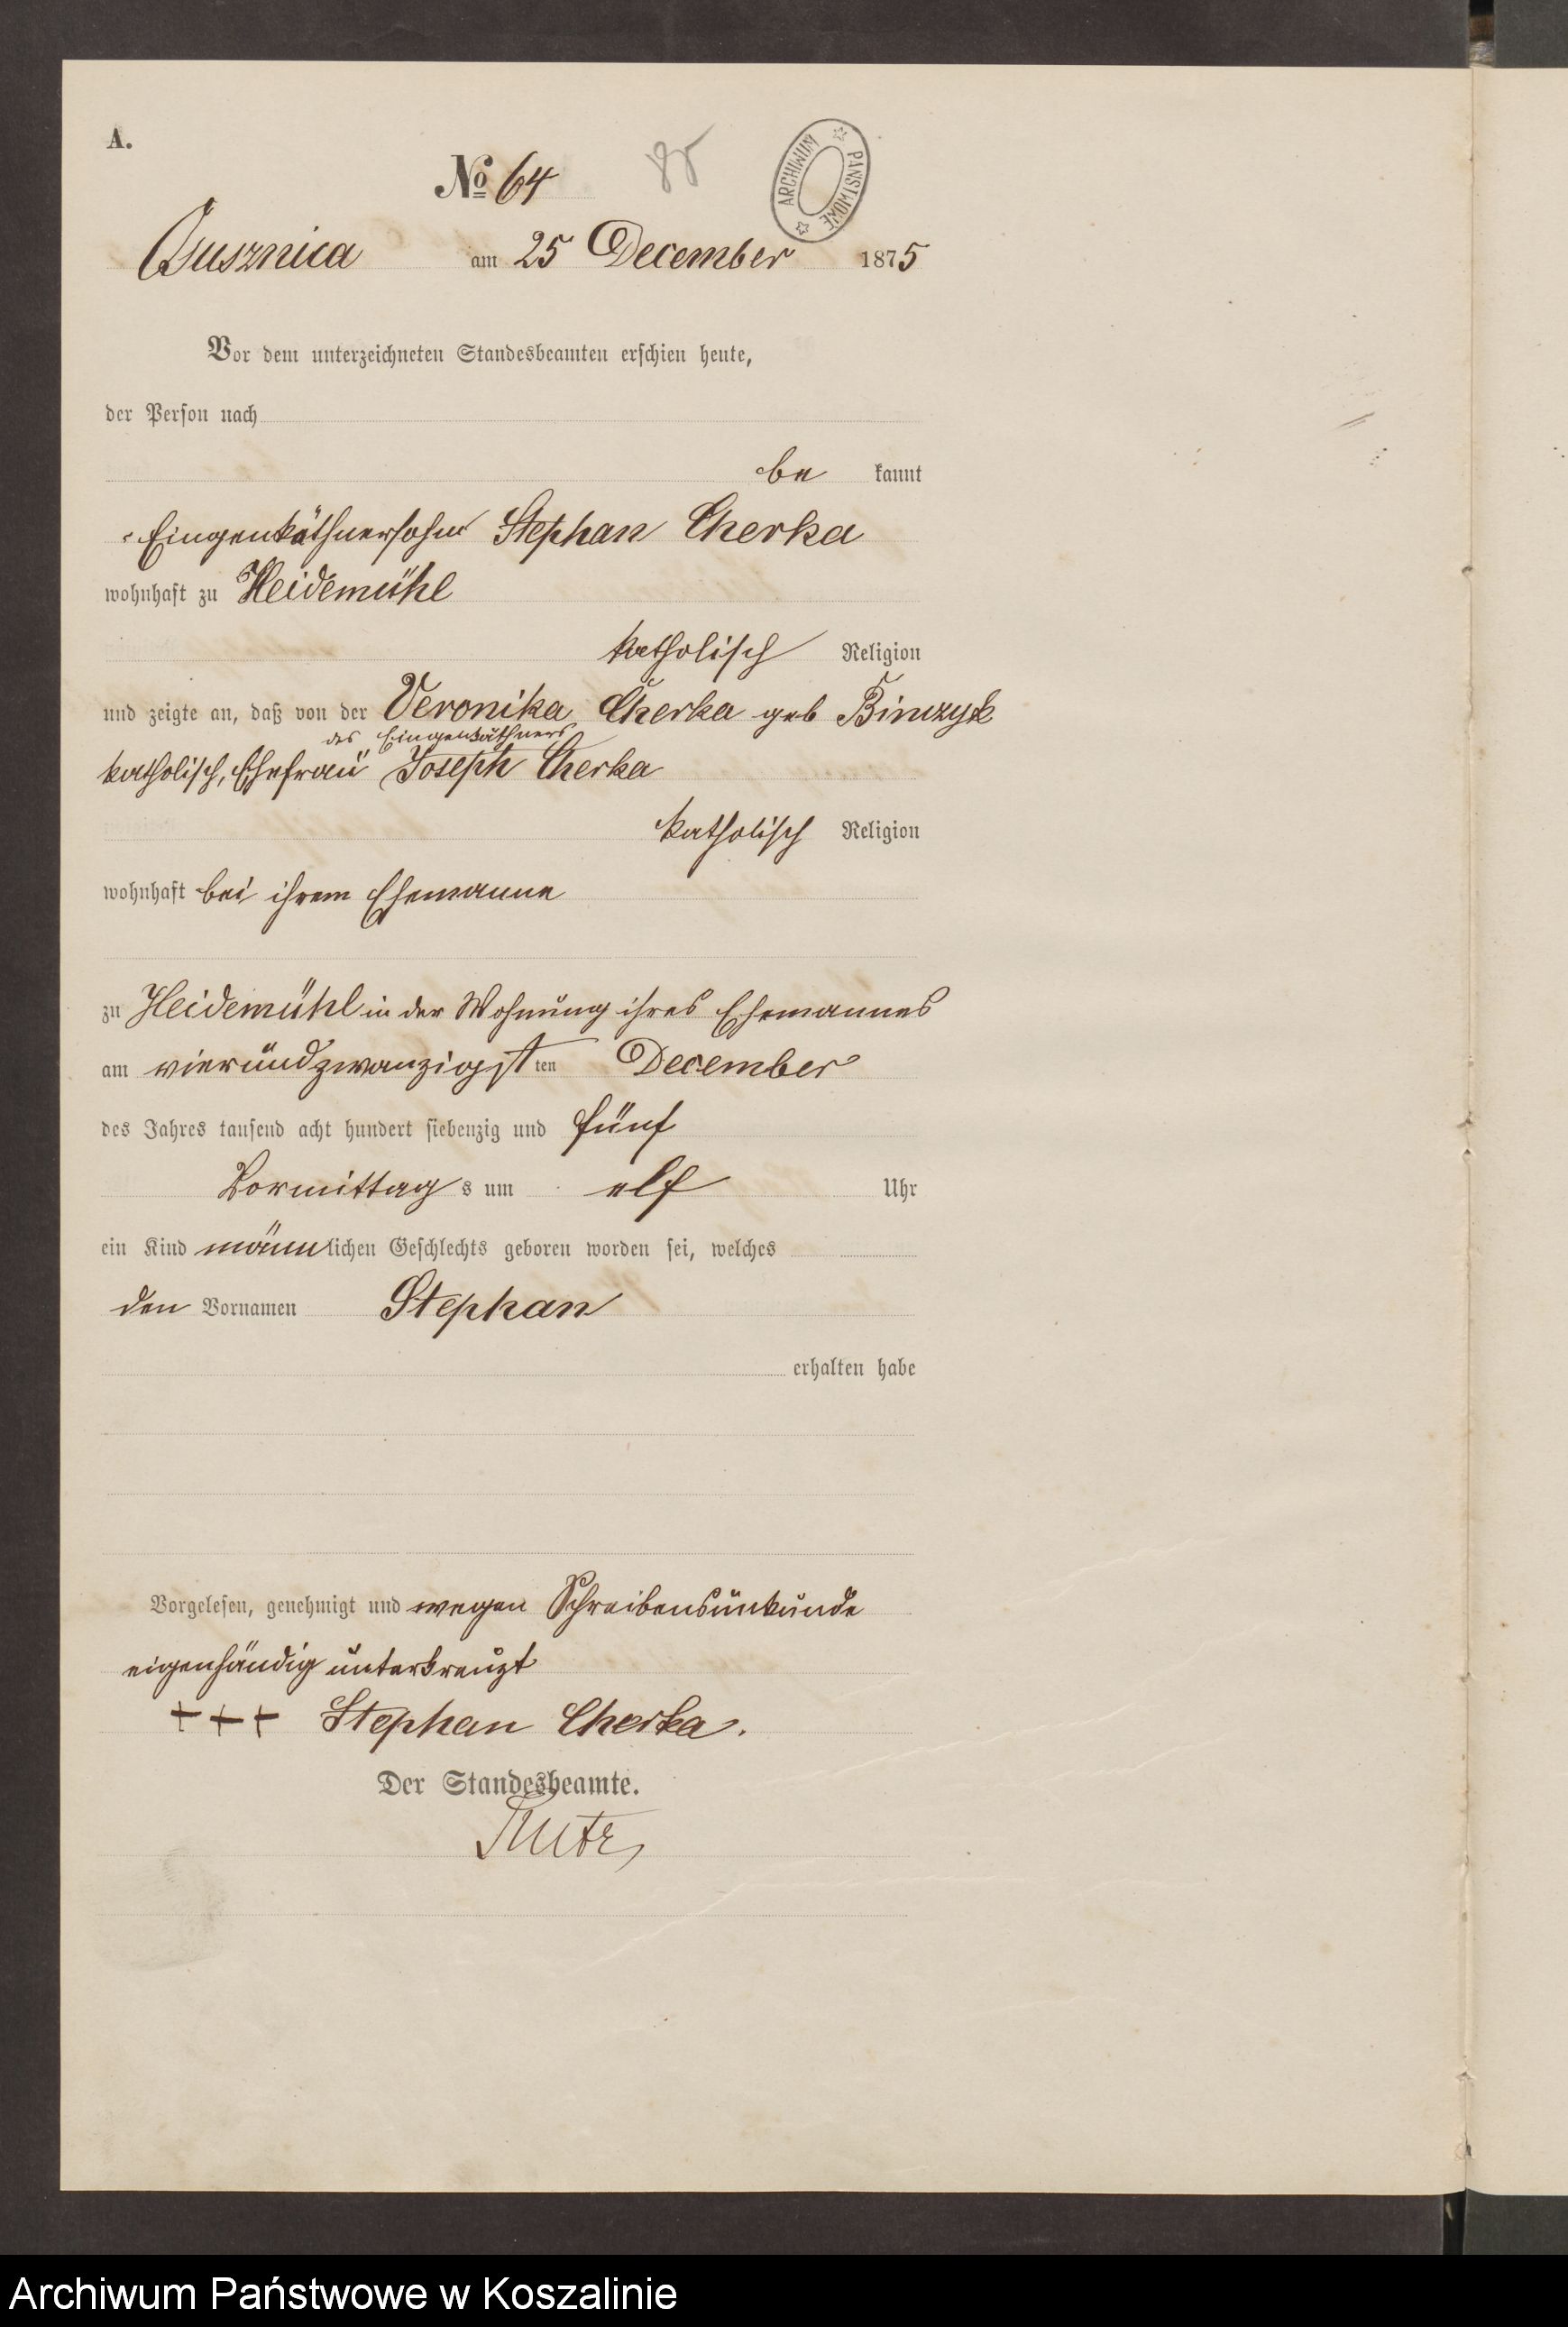 A.
No 64
85
ARCHIWUM PAŃSTWOWE
Busznica am 25 December 1875
Vor dem unterzeichneten Standesbeamten erschien heute,
der Person nach
be kannt
Eingenkäthnersohn Stephan Cherka
wohnhaft zu Heidemühl
katholisch Religion
und zeigte an, daß von der Veronika Cherka geb Binczyk
des Eingenkäthners
katholisch, Ehefrau Joseph Cherka
katholisch Religion
wohnhaft bei ihrem Ehemanne
zu Heidemühl in der Wohnung ihres Ehemannes
am vierundzwanzigst ten December
des Jahres tausend acht hundert siebenzig und fünf
Vormittag s um elf Uhr
ein Kind männlichen Geschlechts geboren worden sei, welches
den Vornamen Stephan
erhalten habe
Vorgelesen, genehmigt und wegen Schreibensunkunde
eigenhändig unterkreuzt
+++ Stephan Cherka.
Der Standesbeamte.
Archiwum Państwowe w Koszalinie